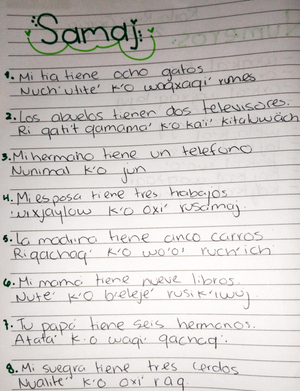 Samaj
1. Mi tia tiene ocho gatos
Nuch'utite' k'o waqxaqi' mes
2. Los abuelos tienen dos televisores.
Ri qatit qamama' k'o ka'i' kitabwäch
3. Mi hermano tiene un telefono
Nunimal k'o jun
4. Mi esposa tiene tres trabajos
wixjaylow k'o oxi' rusamaj
5. La madrina tiene cinco carros
Ri qachaq' k'o wo'o' ruch'ich
6. Mi mama tiene nueve libros.
Nute' k'o b'eleje' rusik'iwuj
7. Tu papá tiene seis hermanos.
Atata' k'o waqi' qachaq'.
8. Mi suegra tiene tres cerdos
Nualite' k'o oxi' raq